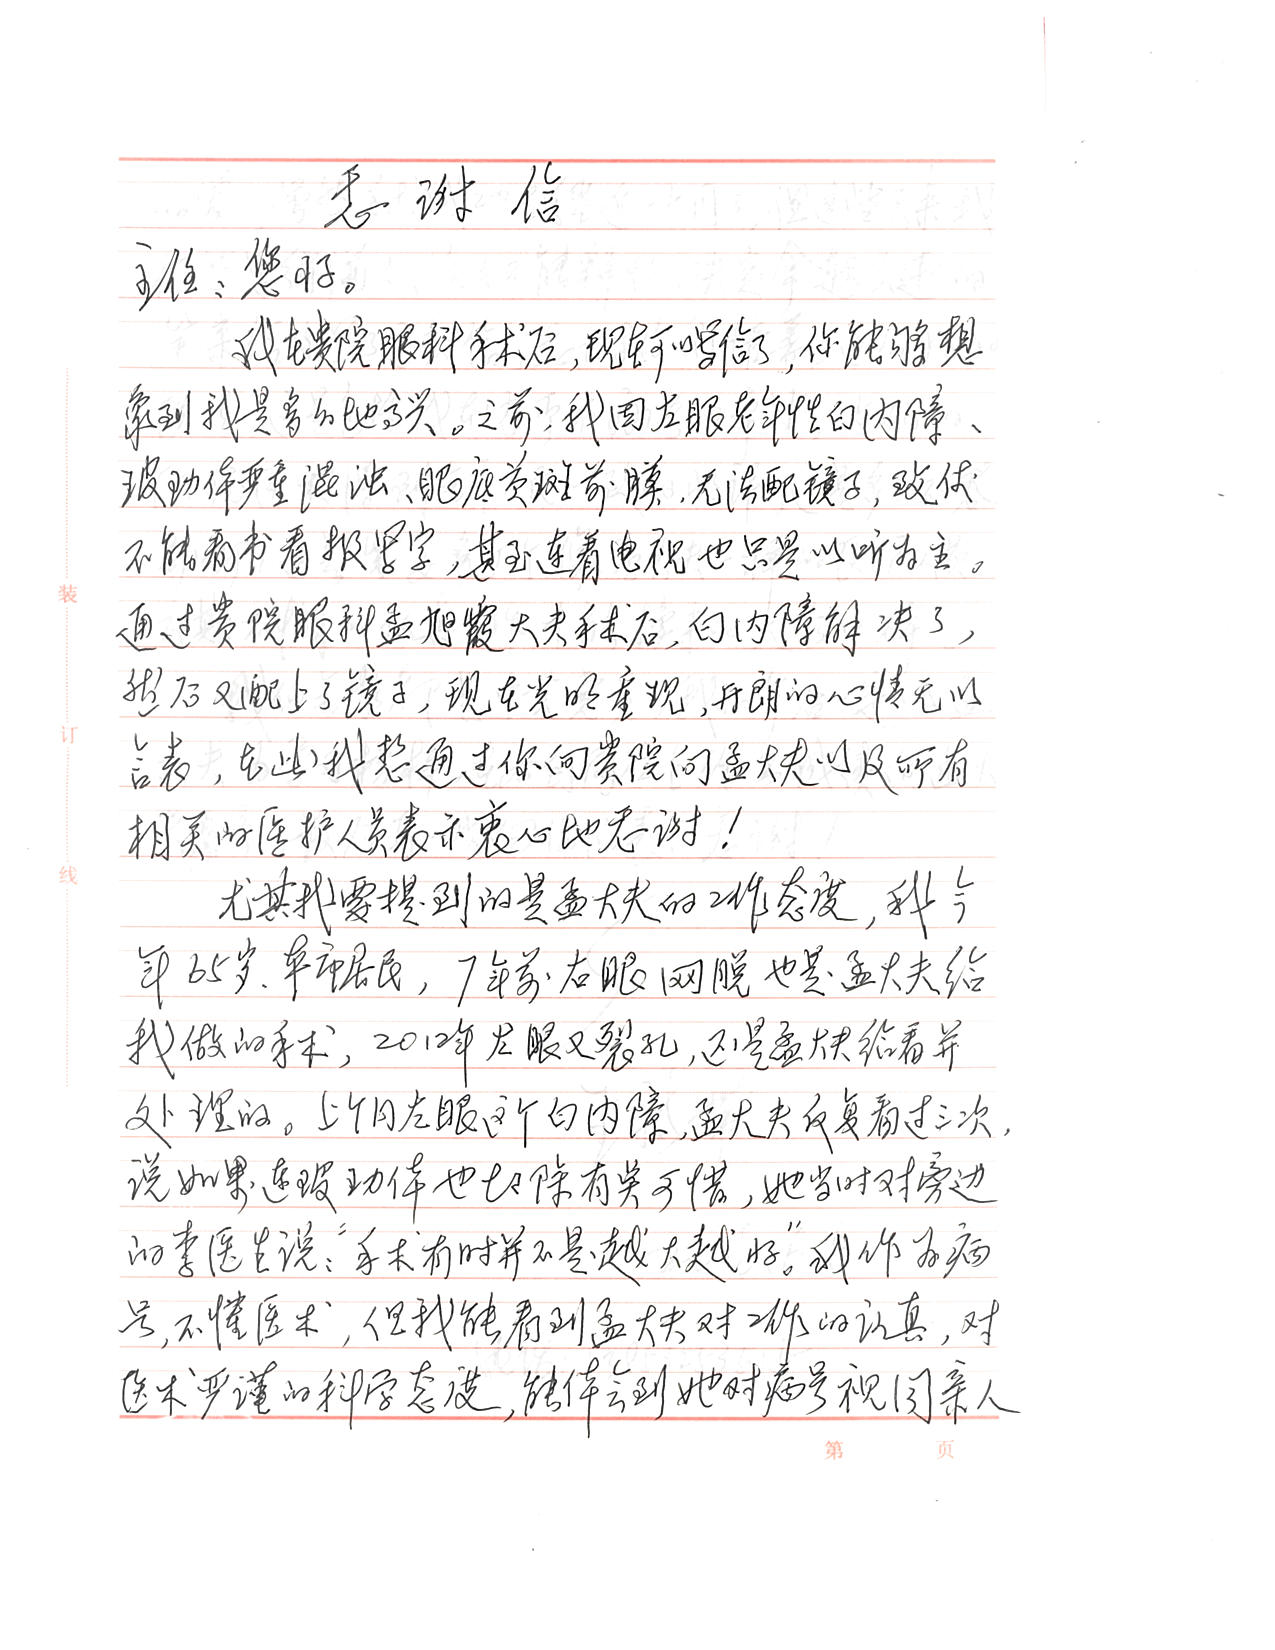 感谢信
主任：您好。
我在贵院眼科手术后，现在可以写信了，你能够想
象到我是多么地高兴。之前，我因左眼老年性白内障、
玻功体严重混浊、眼底黄斑前膜，无法配镜子，致使
不能看书看报写字，甚至连看电视也只是以听为主。
通过贵院眼科孟旭霞大夫手术后，白内障解决了，
然后又配上了镜子，现在光明重现，开朗的心情无以
言表，在此我想通过你向贵院的孟大夫以及所有
相关的医护人员表示衷心地感谢！
尤其我要提到的是孟大夫的工作态度，我今
年65岁、本市居民，7年前右眼网脱也是孟大夫给
我做的手术，2012年左眼又裂孔，还是孟大夫给看并
处理的。上个月左眼这个白内障，孟大夫反复看过三次，
说如果连玻功体也切除有点可惜，她当时对旁边
的李医生说："手术有时并不是越大越好。"我作为病
号，不懂医术，但我能看到孟大夫对工作的认真，对
医术严谨的科学态度，能体会到她对病号视同亲人
装
订
线
第 页